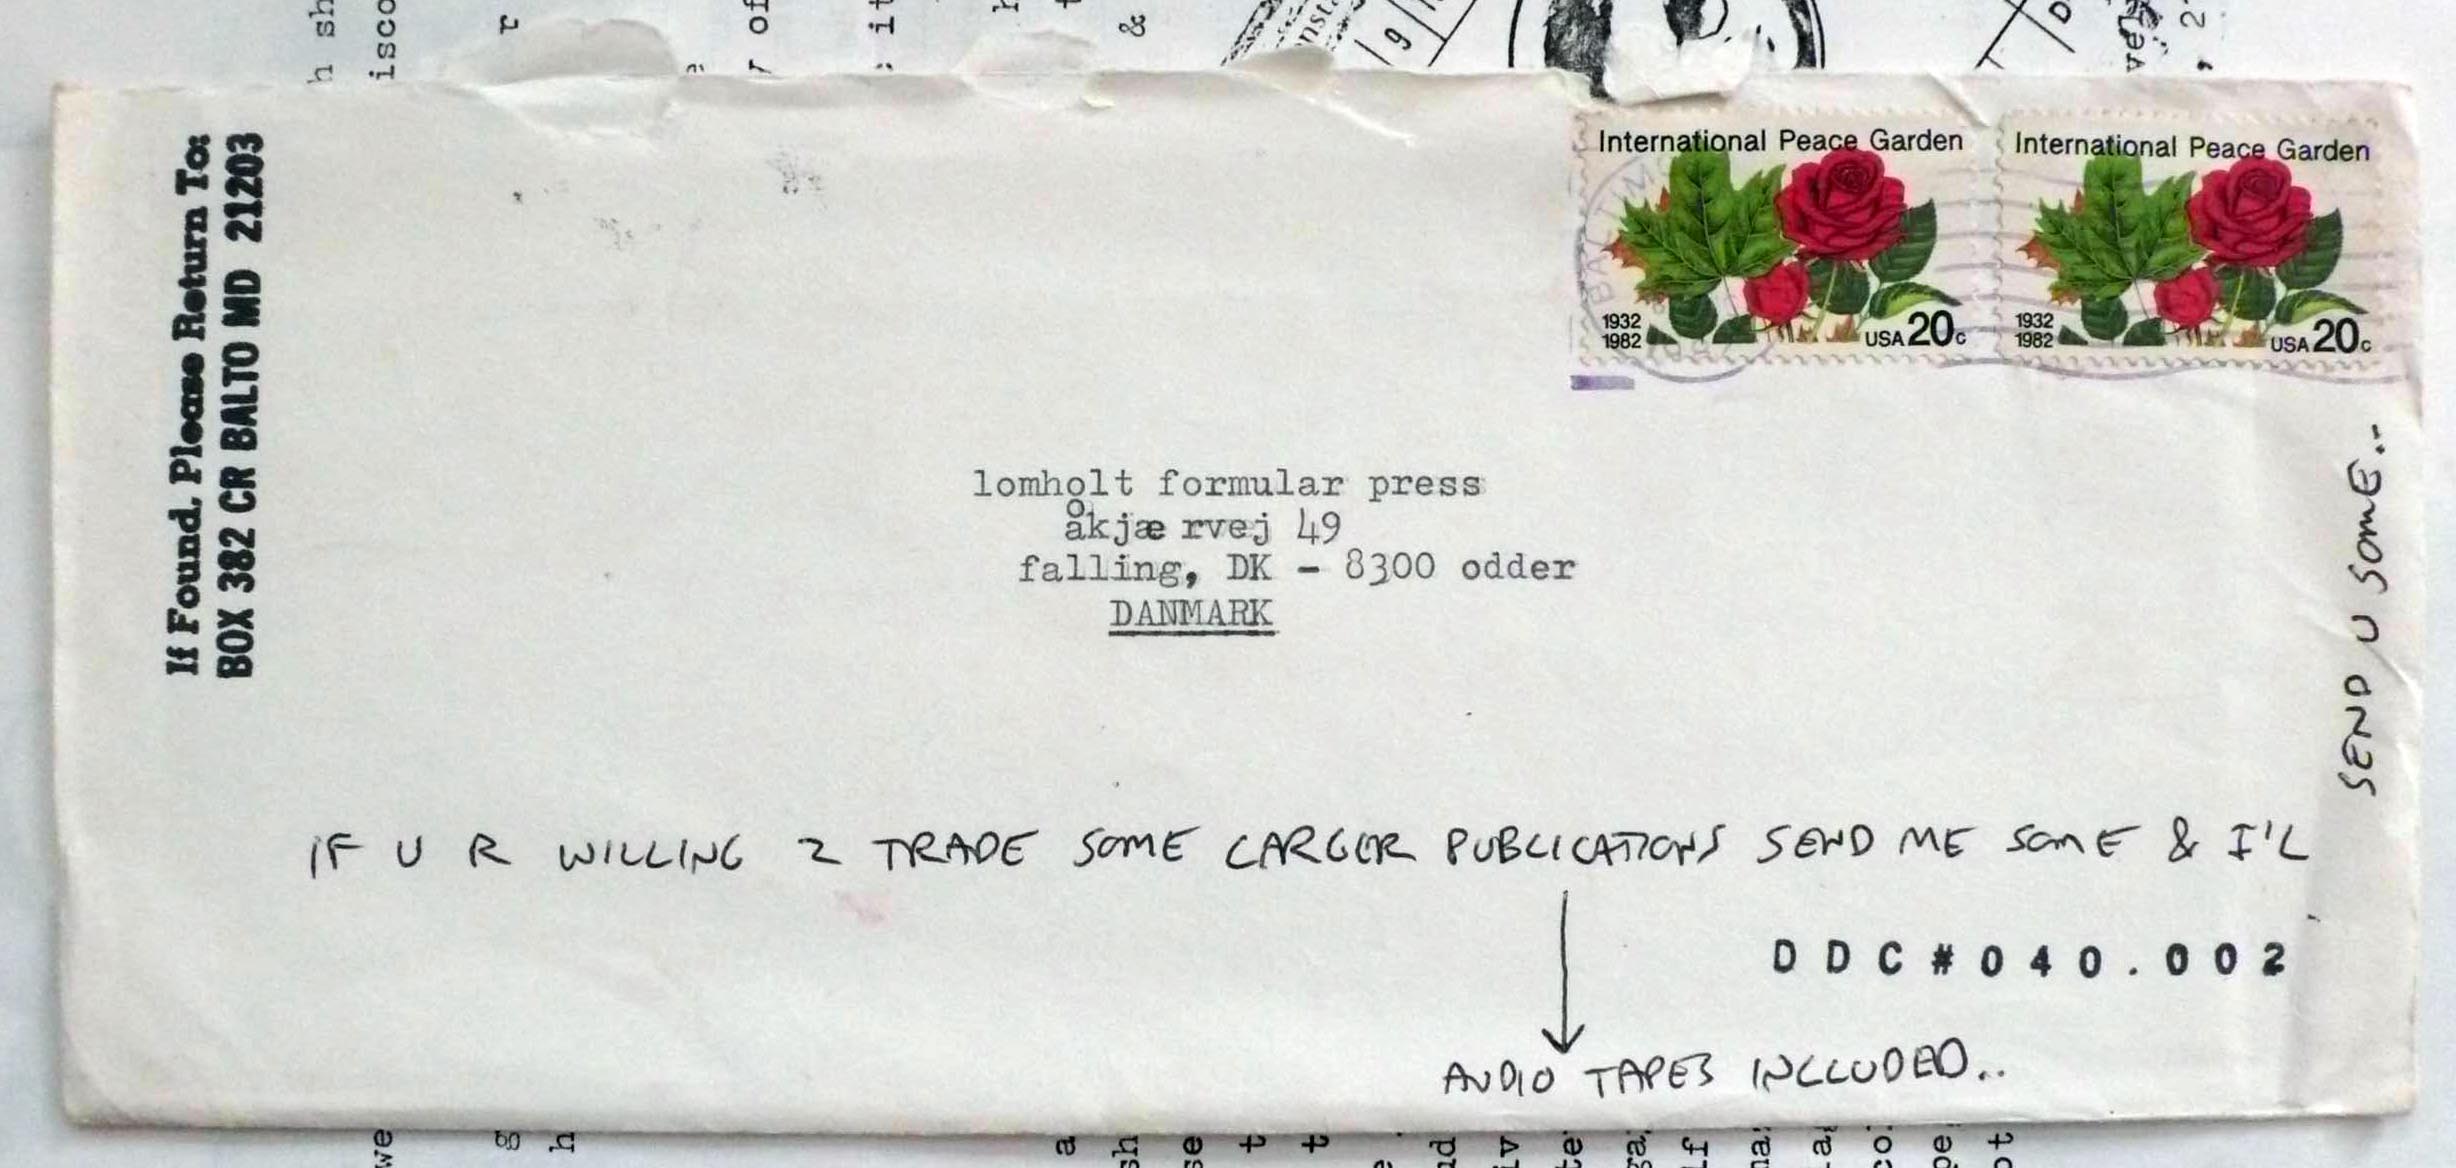 If Found, Please Return To:
BOX 382 CR BALTO MD 21203
International Peace Garden
1932
1982
USA 20c
International Peace Garden
1932
1982
USA 20c
lomholt formular press
åkjæ rvej 49
falling, DK - 8300 odder
DANMARK
IF U R WILLING 2 TRADE SOME LARGER PUBLICATIONS SEND ME SOME & I'L
SEND U SOME..
DDC#040.002
AUDIO TAPES INCLUDED..